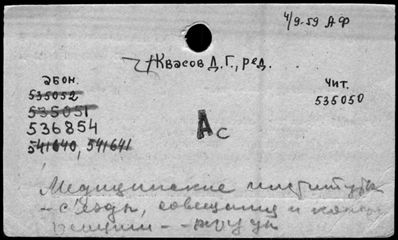 4/9-59 АФ
Квасов Д.Г., ред.
абон.
535052
535051
536854
541640, 541641
Чит.
535050
Ас
Медицинские институты
– съезды, совещания и конфе
ренции – труды